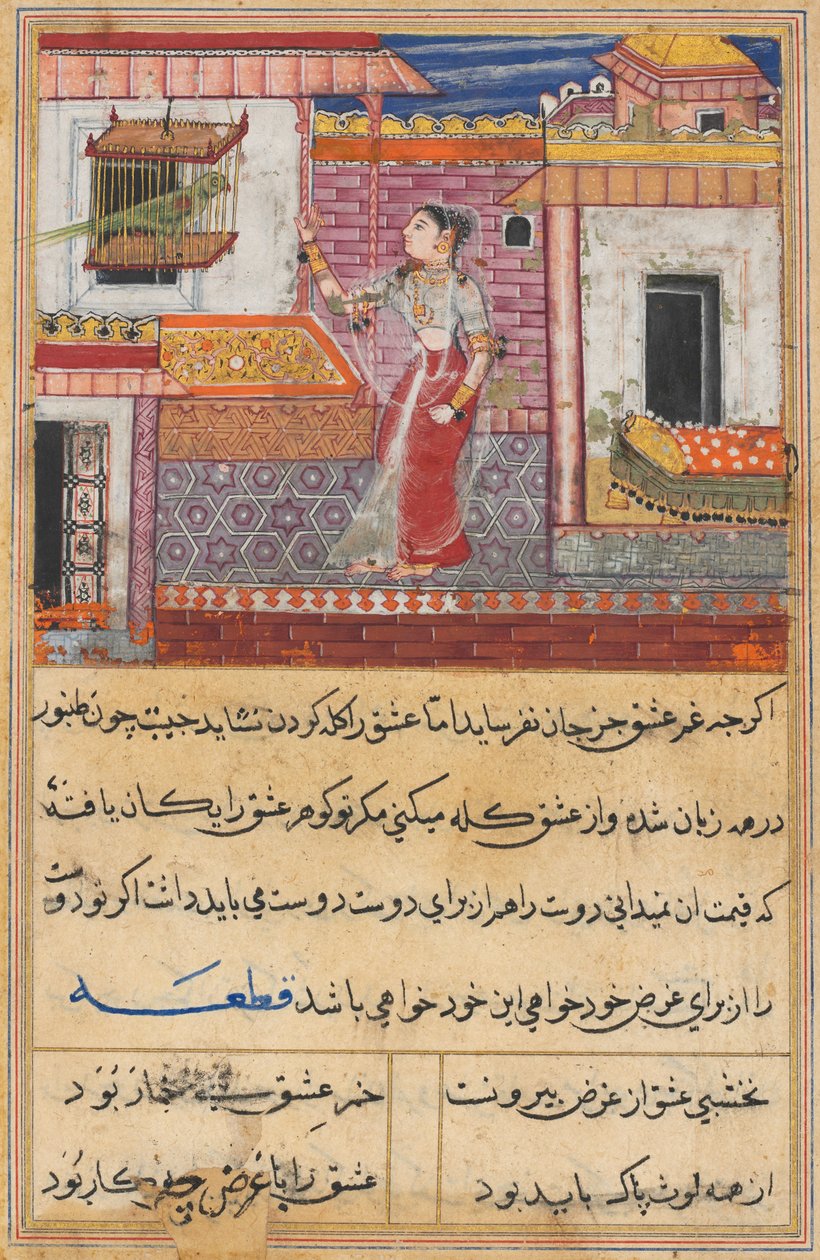 اکرچه غم عشق جز جان نفرساید اما عشق را کله کردن نشاید جیت چون طنبور
در همه زبان شده و از عشق کله میکنی مکر تو کوهر عشق رایکان یافتهٔ
که قیمت ان نمیدانی دوست را هم از برای دوست دوست می باید داشت اکر تو دوست
را از برای غرض خود خواهی این خود خواهی باشد قطعه
نخشبی عشق از غرض بیرونست
خمر عشق بی خمار بود
از همه لوث پاک باید بود
عشق را با غرض چه کار بود